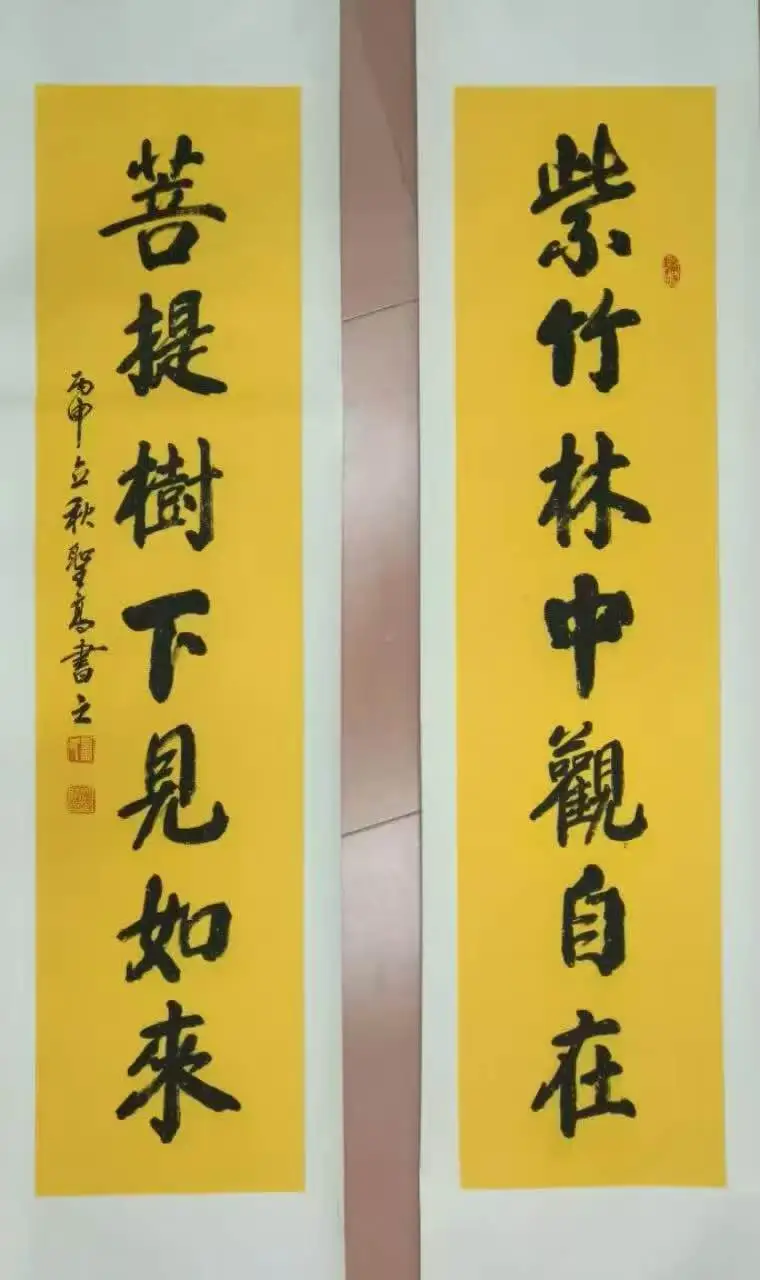 紫竹林中觀自在
菩提樹下見如來
丙申立秋聖高書之